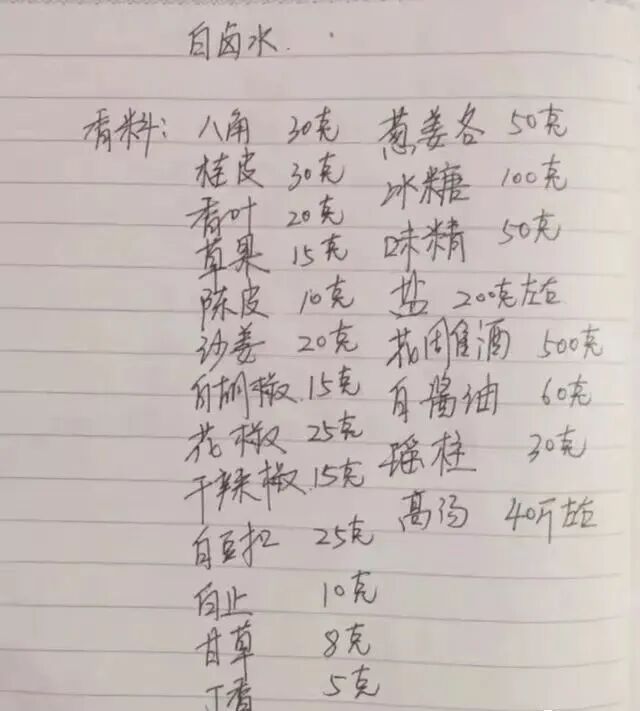 白卤水.
香料: 八角 30克 葱姜各 50克
桂皮 30克 冰糖 100克
香叶 20克 味精 50克
草果 15克
陈皮 10克 盐 200克左右
沙姜 20克 花雕酒 500克
白胡椒 15克 白酱油 60克
花椒 25克 瑶柱 30克
干辣椒 15克
高汤 40斤左右
白豆扣 25克
白止 10克
甘草 8克
丁香 5克